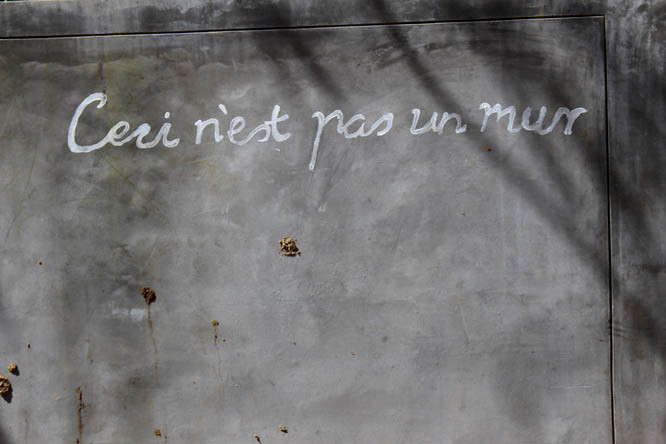 Ceci n'est pas un mur